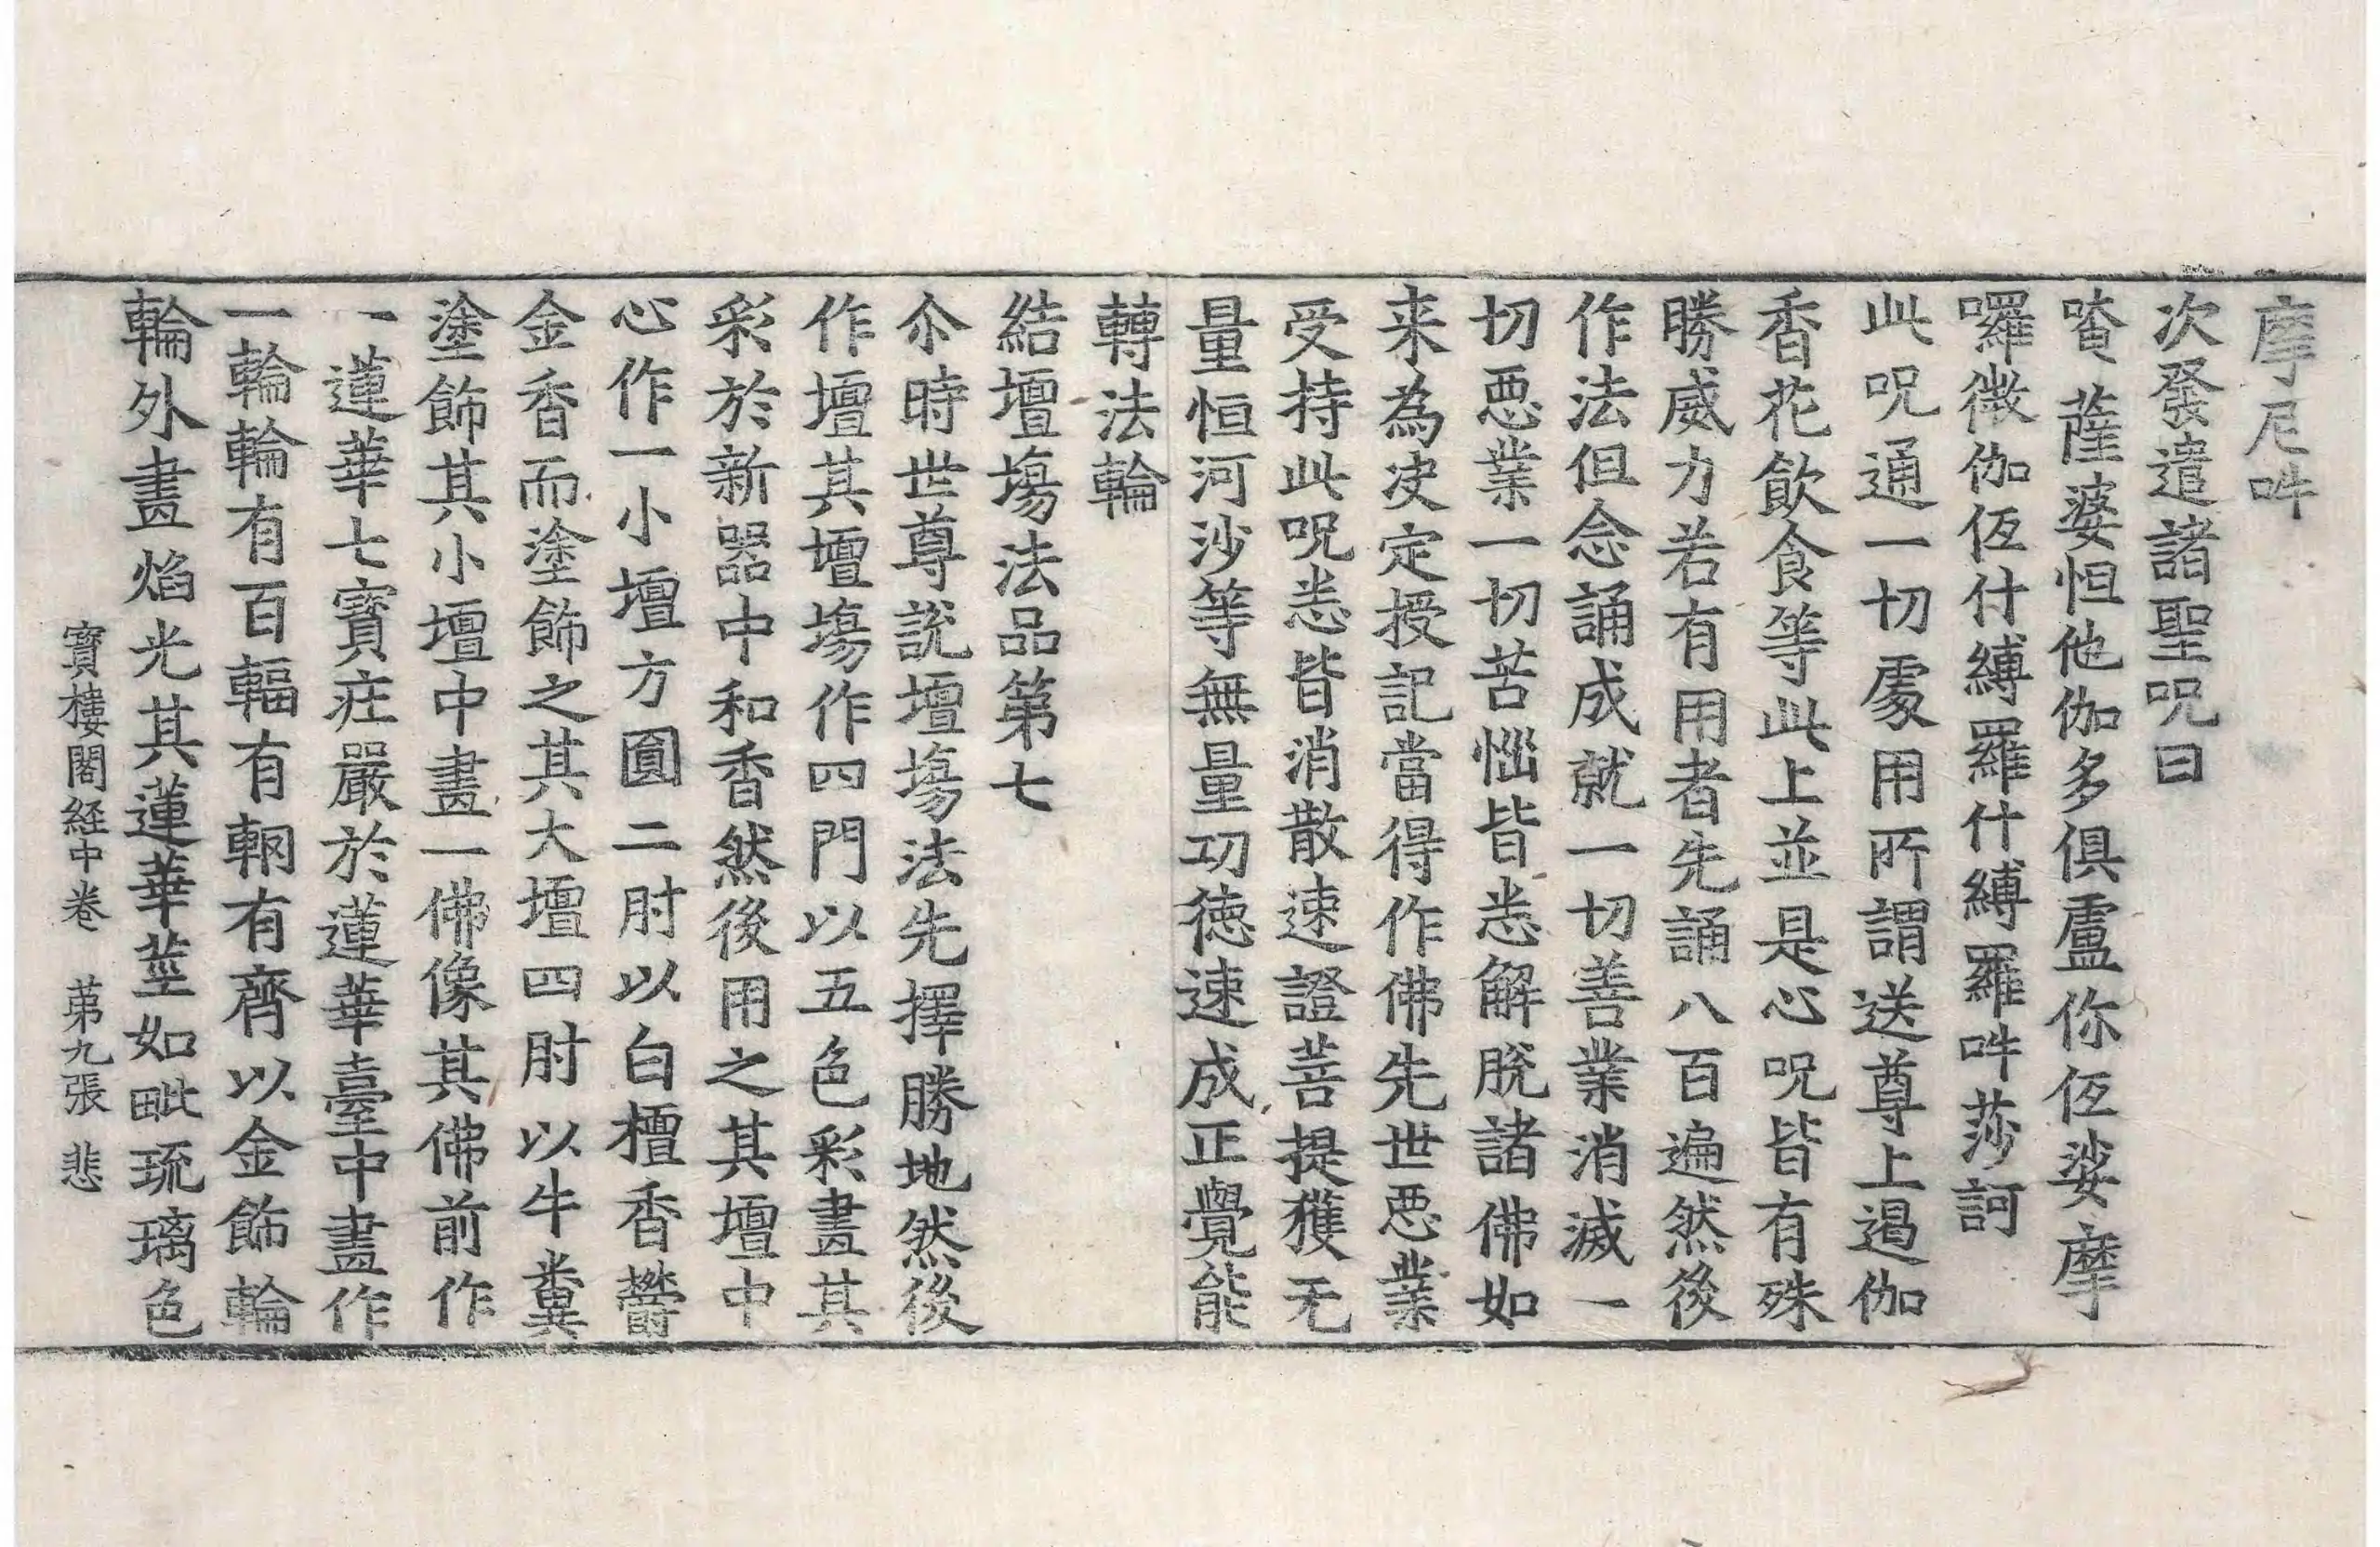 摩尼吽
次發遣諸聖呪曰
唵薩婆怛他伽多俱盧你仾娑摩
囉微伽仾什縛羅什縛羅吽莎訶
此呪通一切處用所謂送尊上遏伽
香花飲食等此上並是心呪皆有殊
勝威力若有用者先誦八百遍然後
作法但念誦成就一切善業消滅一
切惡業一切苦惱皆悉解脫諸佛如
来為决定授記當得作佛先世惡業
受持此呪悉皆消散速證菩提獲无
量恒河沙等無量功德速成正覺能
轉法輪
結壇場法品第七
尒時世尊說壇場法先擇勝地然後
作壇其壇場作四門以五色彩畫其
彩於新器中和香然後用之其壇中
心作一小壇方圓二肘以白檀香欝
金香而塗飾之其大壇四肘以牛糞
塗飾其小壇中畫一佛像其佛前作
一蓮華七寶疘嚴於蓮華臺中畫作
一輪輪有百輻有輞有齊以金飾輪
輪外畫焰光其蓮華莖如毗琉璃色
寶樓閣経中卷 苐九張 悲